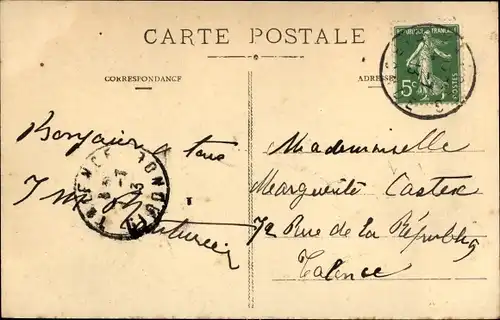 CARTE POSTALE
CORRESPONDANCE
ADRESSE
REPUBLIQUE FRANÇAISE
5c
POSTES
Bonjour à tous
Mademoiselle
Marguerite Castex
72 Rue de la Républiq
Talence
TALENCE GIRONDE